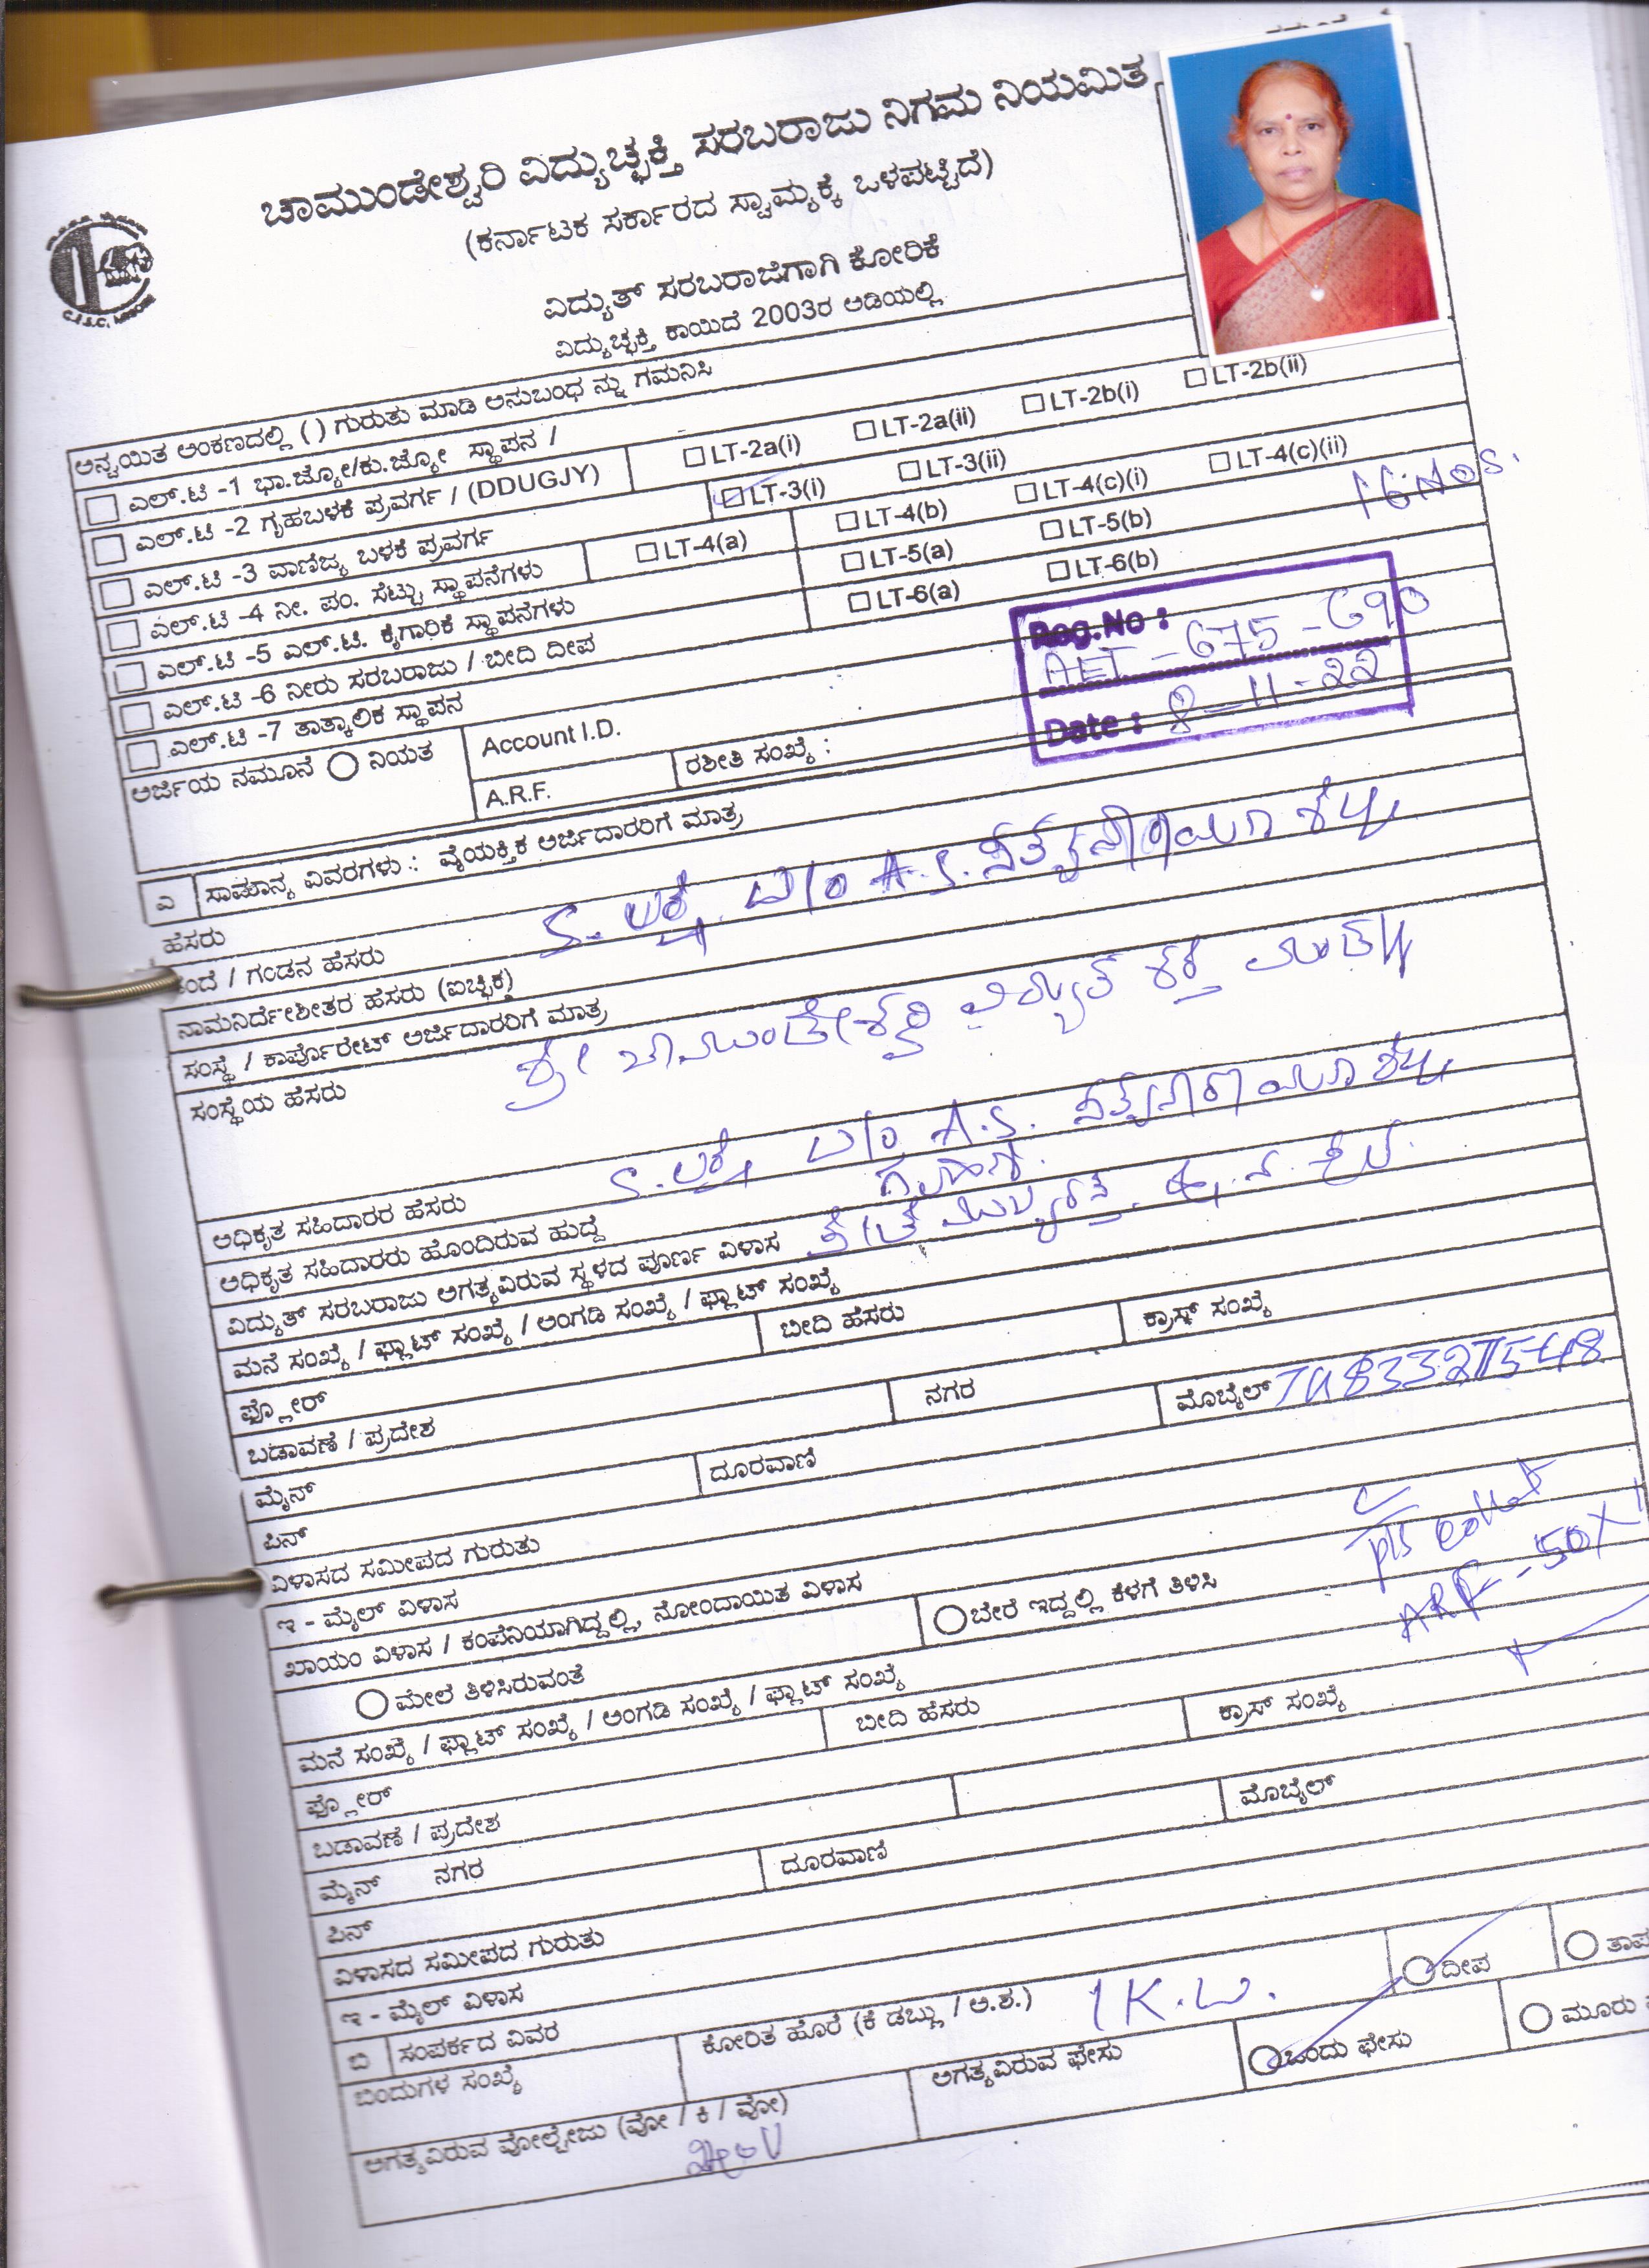 ಚಾಮುಂಡೇಶ್ವರಿ ವಿದ್ಯುಚ್ಛಕ್ತಿ ಸರಬರಾಜು ನಿಗಮ ನಿಯಮಿತ
(ಕರ್ನಾಟಕ ಸರ್ಕಾರದ ಸ್ವಾಮ್ಯಕ್ಕೆ ಒಳಪಟ್ಟಿದೆ)
ವಿದ್ಯುತ್ ಸರಬರಾಜಿಗಾಗಿ ಕೋರಿಕೆ
ವಿದ್ಯುಚ್ಛಕ್ತಿ ಕಾಯಿದೆ 2003ರ ಅಡಿಯಲ್ಲಿ
ಅನ್ವಯಿತ ಅಂಕಣದಲ್ಲಿ ( ) ಗುರುತು ಮಾಡಿ ಅನುಬಂಧ ನ್ನು ಗಮನಿಸಿ
ಎಲ್.ಟಿ -1 ಭಾ.ಜ್ಯೋ/ಕು.ಜ್ಯೋ ಸ್ಥಾಪನ /
ಎಲ್.ಟಿ -2 ಗೃಹಬಳಕೆ ಪ್ರವರ್ಗ / (DDUGJY) LT-2a(i) LT-2a(ii) LT-2b(i) LT-2b(ii)
ಎಲ್.ಟಿ -3 ವಾಣಿಜ್ಯ ಬಳಕೆ ಪ್ರವರ್ಗ LT-3(i) LT-3(ii)
ಎಲ್.ಟಿ -4 ನೀ. ಪಂ. ಸೆಟ್ಟು ಸ್ಥಾಪನೆಗಳು LT-4(a) LT-4(b) LT-4(c)(i) LT-4(c)(ii)
ಎಲ್.ಟಿ -5 ಎಲ್.ಟಿ. ಕೈಗಾರಿಕೆ ಸ್ಥಾಪನೆಗಳು LT-5(a) LT-5(b) 16 NOS.
ಎಲ್.ಟಿ -6 ನೀರು ಸರಬರಾಜು / ಬೀದಿ ದೀಪ LT-6(a) LT-6(b)
ಎಲ್.ಟಿ -7 ತಾತ್ಕಾಲಿಕ ಸ್ಥಾಪನ
Reg.No :
AET - 675 - 690
Date : 8-11-22
ಅರ್ಜಿಯ ನಮೂನೆ ನಿಯತ Account I.D.
A.R.F. ರಶೀತಿ ಸಂಖ್ಯೆ :
ಎ ಸಾಮಾನ್ಯ ವಿವರಗಳು : ವೈಯಕ್ತಿಕ ಅರ್ಜಿದಾರರಿಗೆ ಮಾತ್ರ
ಹೆಸರು
ತಂದೆ / ಗಂಡನ ಹೆಸರು S. ಲಕ್ಷ್ಮಿ W/o A.S.
ನಾಮನಿರ್ದೇಶೀತರ ಹೆಸರು (ಐಚ್ಛಿಕ)
ಸಂಸ್ಥೆ / ಕಾರ್ಪೊರೇಟ್ ಅರ್ಜಿದಾರರಿಗೆ ಮಾತ್ರ
ಸಂಸ್ಥೆಯ ಹೆಸರು ಶ್ರೀ ಚಾಮುಂಡೇಶ್ವರಿ ವಿದ್ಯುತ್ ಶಕ್ತಿ
ಅಧಿಕೃತ ಸಹಿದಾರರ ಹೆಸರು S. ಲಕ್ಷ್ಮಿ W/o A.S.
ಅಧಿಕೃತ ಸಹಿದಾರರು ಹೊಂದಿರುವ ಹುದ್ದೆ
ವಿದ್ಯುತ್ ಸರಬರಾಜು ಅಗತ್ಯವಿರುವ ಸ್ಥಳದ ಪೂರ್ಣ ವಿಳಾಸ
ಮನೆ ಸಂಖ್ಯೆ / ಫ್ಲಾಟ್ ಸಂಖ್ಯೆ / ಅಂಗಡಿ ಸಂಖ್ಯೆ / ಫ್ಲಾಟ್ ಸಂಖ್ಯೆ
ಫ್ಲೋರ್ ಬೀದಿ ಹೆಸರು ಕ್ರಾಸ್ ಸಂಖ್ಯೆ
ಬಡಾವಣೆ / ಪ್ರದೇಶ
ಮೈನ್ ನಗರ
ಪಿನ್ ದೂರವಾಣಿ ಮೊಬೈಲ್
ವಿಳಾಸದ ಸಮೀಪದ ಗುರುತು
ಇ - ಮೈಲ್ ವಿಳಾಸ
ಖಾಯಂ ವಿಳಾಸ / ಕಂಪೆನಿಯಾಗಿದ್ದಲ್ಲಿ, ನೋಂದಾಯಿತ ವಿಳಾಸ
ಮೇಲೆ ತಿಳಿಸಿರುವಂತೆ ಬೇರೆ ಇದ್ದಲ್ಲಿ ಕೆಳಗೆ ತಿಳಿಸಿ
ARF - 50X
ಮನೆ ಸಂಖ್ಯೆ / ಫ್ಲಾಟ್ ಸಂಖ್ಯೆ / ಅಂಗಡಿ ಸಂಖ್ಯೆ / ಫ್ಲಾಟ್ ಸಂಖ್ಯೆ
ಫ್ಲೋರ್ ಬೀದಿ ಹೆಸರು ಕ್ರಾಸ್ ಸಂಖ್ಯೆ
ಬಡಾವಣೆ / ಪ್ರದೇಶ
ಮೈನ್ ನಗರ
ಪಿನ್ ದೂರವಾಣಿ ಮೊಬೈಲ್
ವಿಳಾಸದ ಸಮೀಪದ ಗುರುತು
ಇ - ಮೈಲ್ ವಿಳಾಸ
ಬಿ ಸಂಪರ್ಕದ ವಿವರ
ಬಿಂದುಗಳ ಸಂಖ್ಯೆ ಕೋರಿತ ಹೊರೆ (ಕೆ ಡಬ್ಲು / ಅ.ಶ.) 1 K.W. ದೀಪ
ಅಗತ್ಯವಿರುವ ವೋಲ್ಟೇಜು (ವೋ / ಕಿ / ವೋ) ಅಗತ್ಯವಿರುವ ಫೇಸು ಒಂದು ಫೇಸು ಮೂರು
240V